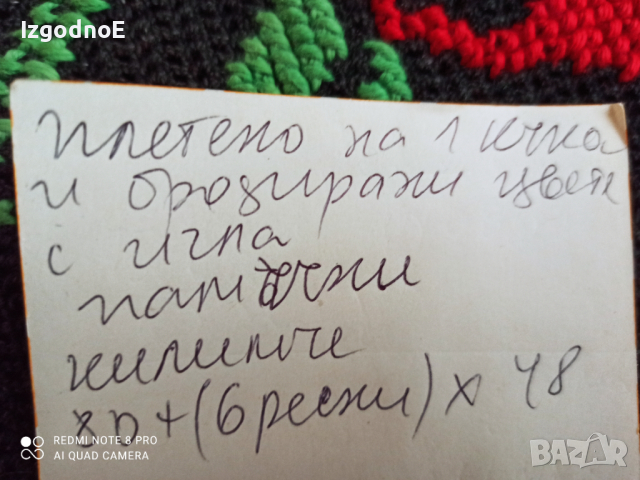 IzgodnoE
плетено на 1 кука
и бродирани цветя
с игла
памучни
килимче
80+(6 ресни) х 48
REDMI NOTE 8 PRO
AI QUAD CAMERA
BAZAR